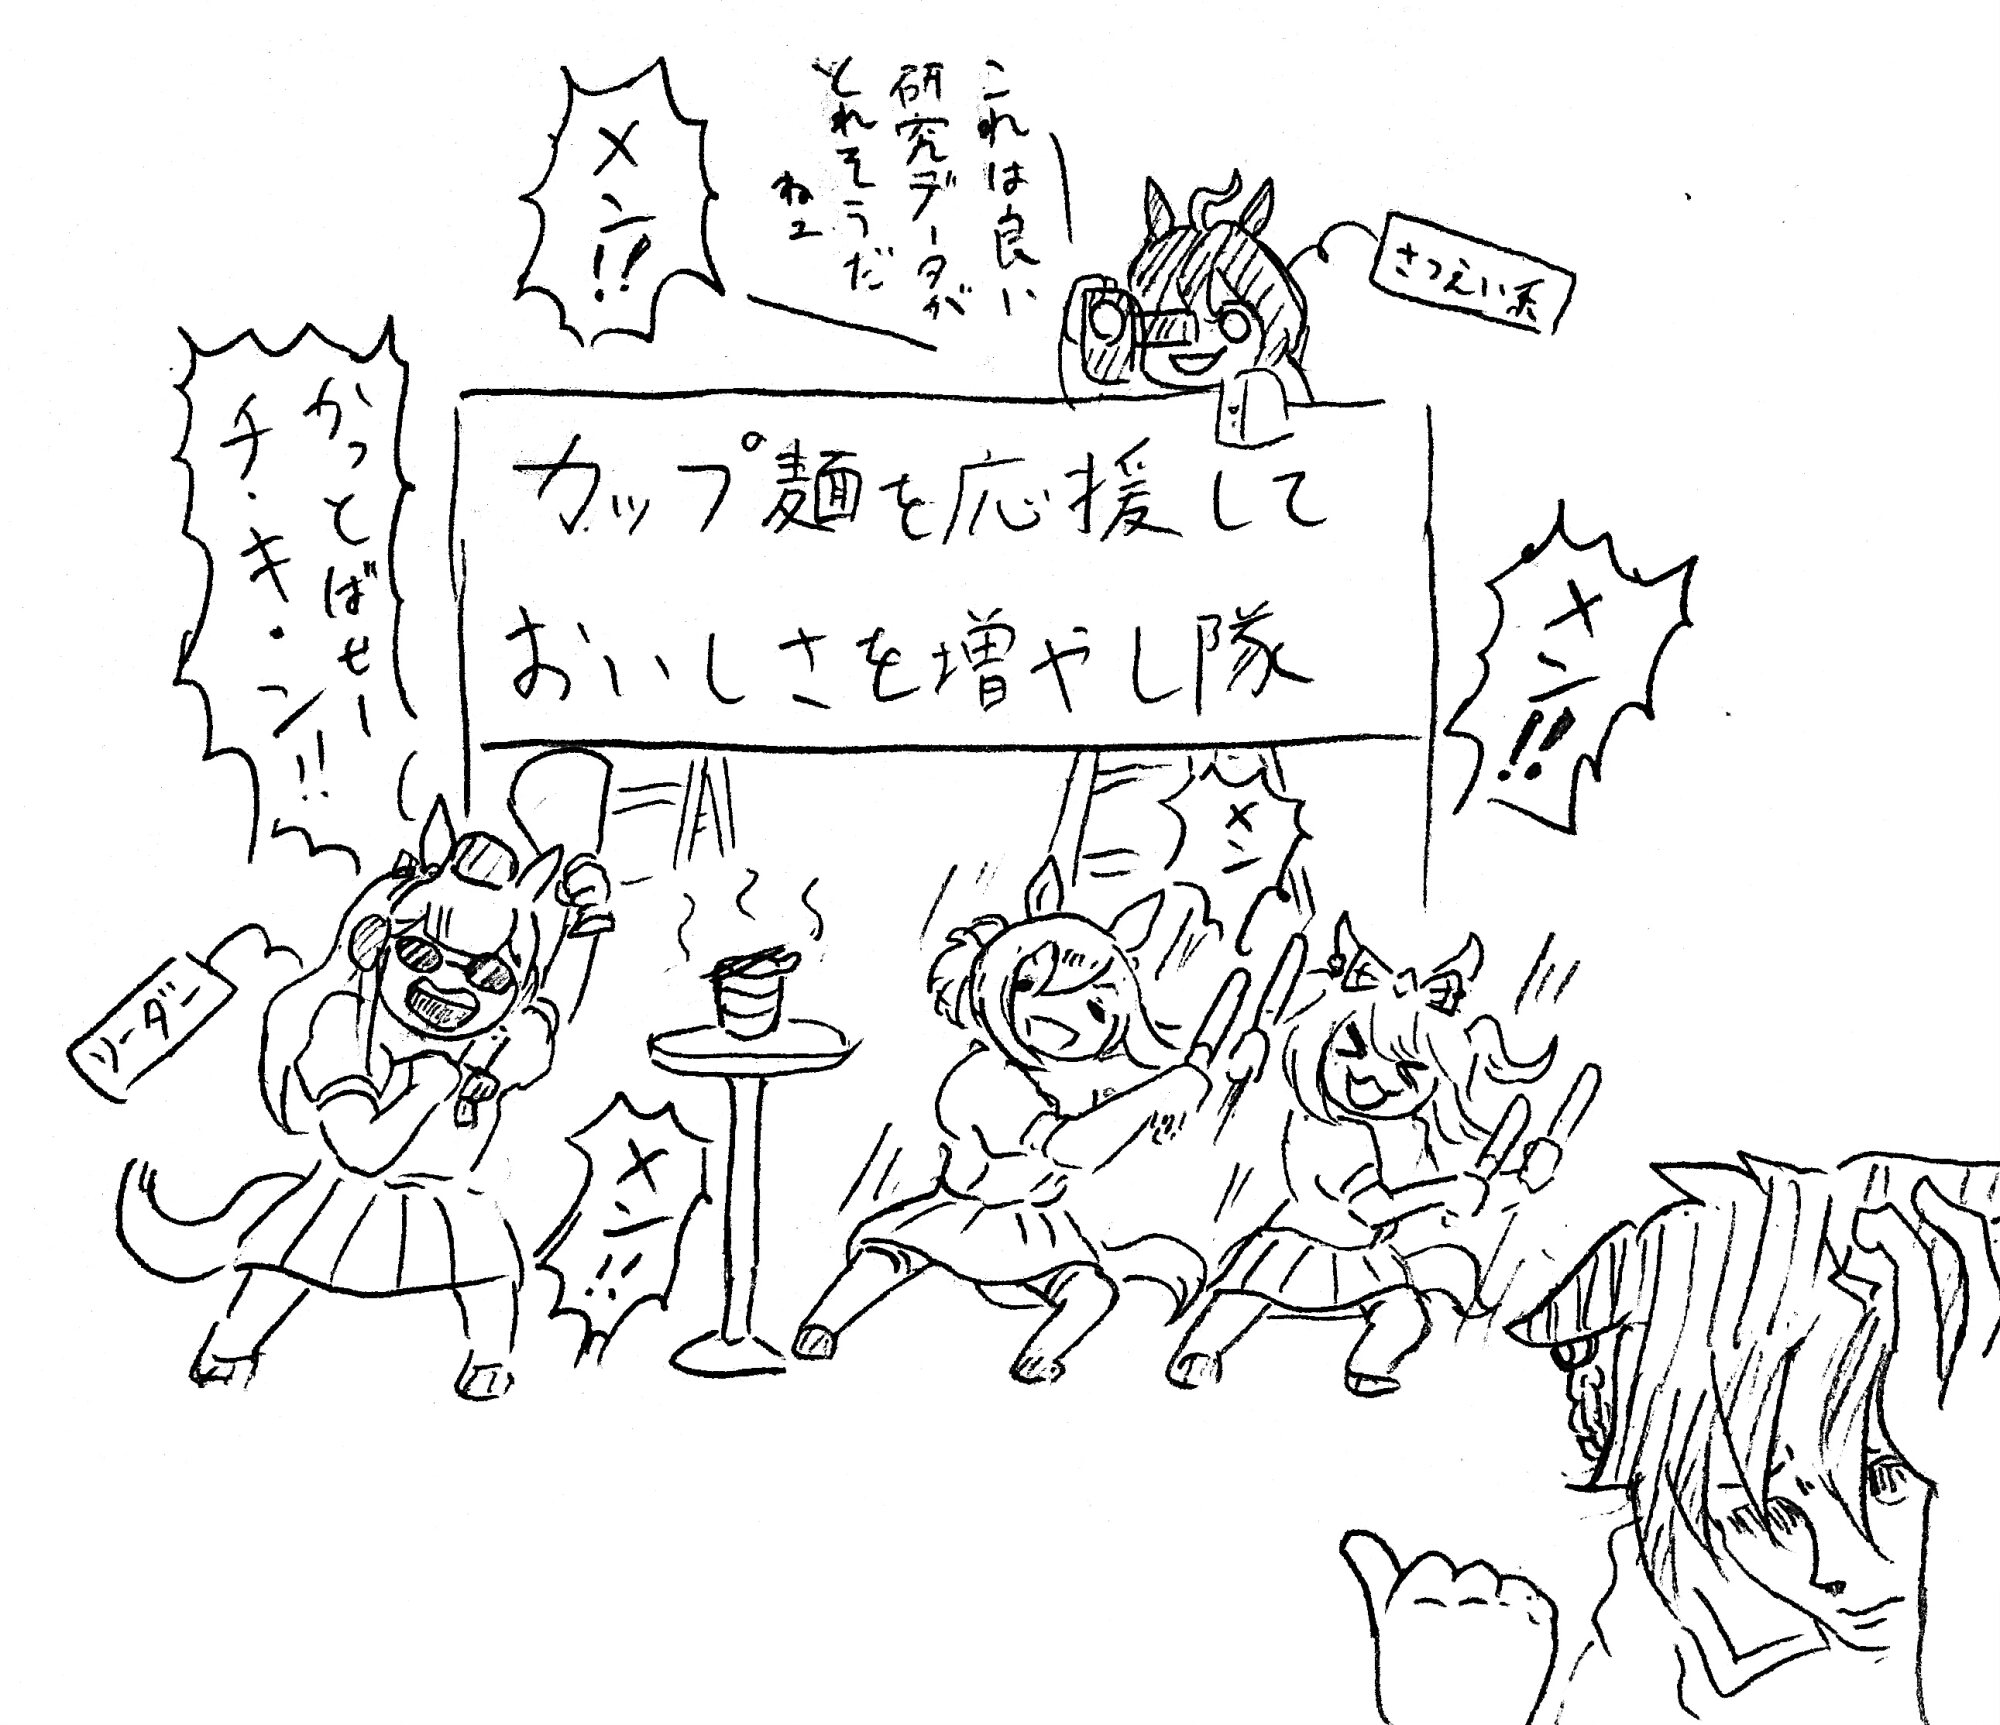 これは良い
研究データが
とれそうだ
ねェ
さつえい系
メン!!
かっとばせー
チ・キ・ン!!
カップ麺を応援して
おいしさを増やし隊
メン!!
メン
リーダー
メン!!